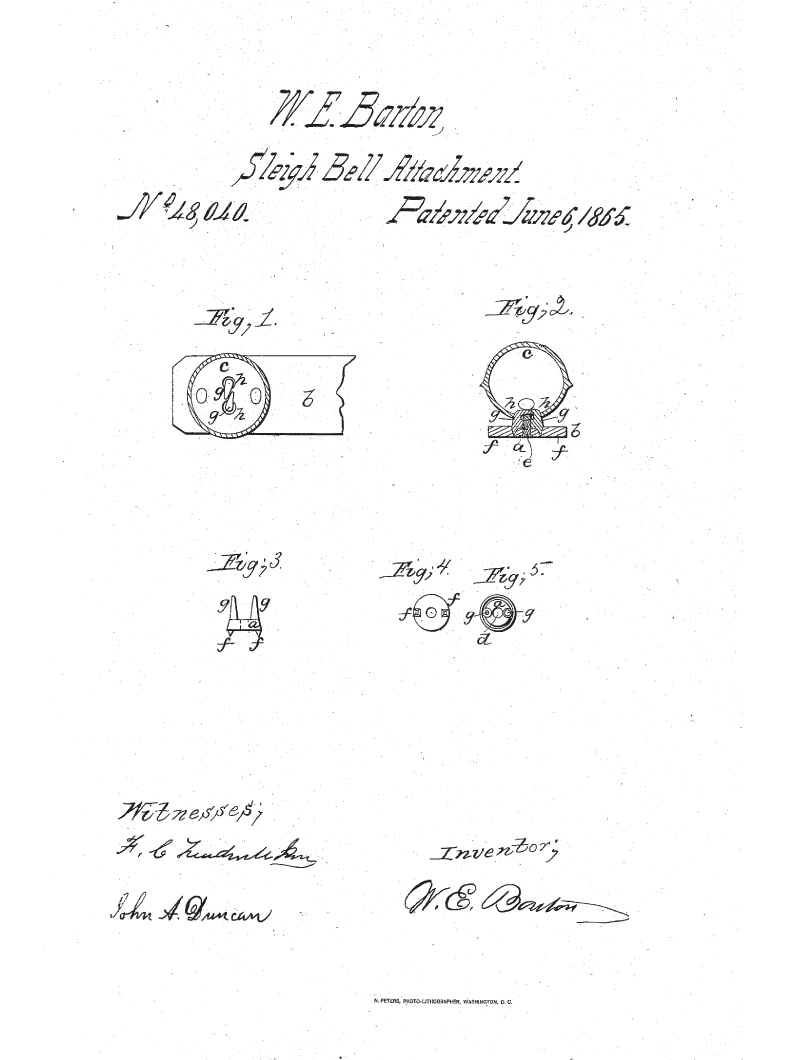 W. E. Barton,
Sleigh Bell Attachment.
No 48,040. Patented June 6, 1865.
Fig, 1. Fig; 2.
c
h
g
h
g
b
c
h h
g g
b
f a f
e
Fig; 3. Fig; 4. Fig; 5.
g g
a
f f
f f
a
g g
d
Witnesses;
F. C.
John A. Duncan
Inventor;
W. E. Barton
N. PETERS, PHOTO-LITHOGRAPHER, WASHINGTON, D. C.